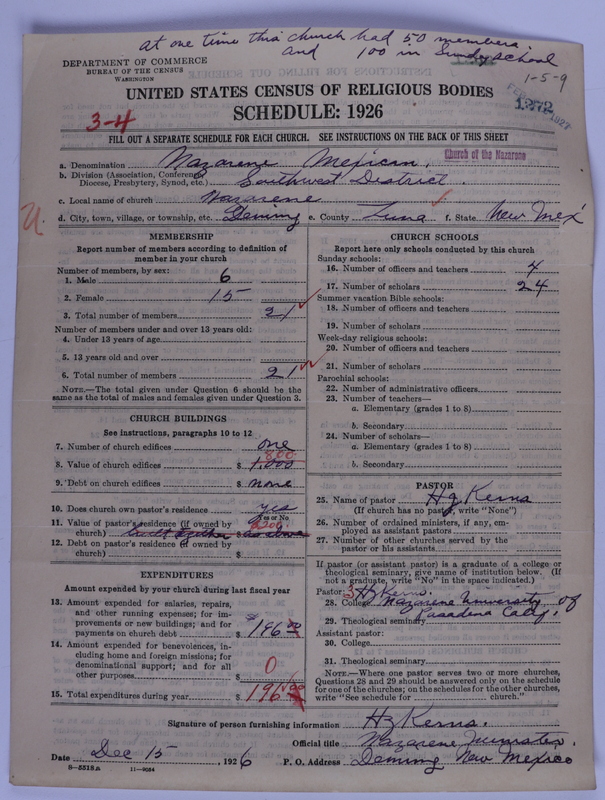 at one time this church had 50 members.
and 100 in Sunday school
DEPARTMENT OF COMMERCE
BUREAU OF THE CENSUS
WASHINGTON
1-5-9
UNITED STATES CENSUS OF RELIGIOUS BODIES
1272
SCHEDULE: 1926
3-4
FILL OUT A SEPARATE SCHEDULE FOR EACH CHURCH. SEE INSTRUCTIONS ON THE BACK OF THIS SHEET
Church of the Nazarene
a. Denomination Nazarene Mexican.
b. Division (Association, Conference, Diocese, Presbytery, Synod, etc.) Southwest District.
c. Local name of church Nazarene
d. City, town, village, or township, etc. Deming e. County Luna f. State New Mex
MEMBERSHIP
Report number of members according to definition of
member in your church
Number of members, by sex:
1. Male 6
2. Female 15
3. Total number of members 21
Number of members under and over 13 years old:
4. Under 13 years of age
5. 13 years old and over
6. Total number of members 21
NOTE.—The total given under Question 6 should be the
same as the total of males and females given under Question 3.
CHURCH BUILDINGS
See instructions, paragraphs 10 to 12
7. Number of church edifices one
800
8. Value of church edifices $ 1,000
9. Debt on church edifices $ none
10. Does church own pastor's residence yes
Yes or No
11. Value of pastor's residence (if owned by
church) built together $ as above
200
12. Debt on pastor's residence (if owned by
church) $
EXPENDITURES
Amount expended by your church during last fiscal year
13. Amount expended for salaries, repairs,
and other running expenses; for im-
provements or new buildings; and for
payments on church debt $ 196.00
14. Amount expended for benevolences, in-
cluding home and foreign missions; for
denominational support; and for all
other purposes $ 0
15. Total expenditures during year $ 196.00
CHURCH SCHOOLS
Report here only schools conducted by this church
Sunday schools:
16. Number of officers and teachers 4
17. Number of scholars 24
Summer vacation Bible schools:
18. Number of officers and teachers
19. Number of scholars
Week-day religious schools:
20. Number of officers and teachers
21. Number of scholars
Parochial schools:
22. Number of administrative officers
23. Number of teachers—
a. Elementary (grades 1 to 8)
b. Secondary
24. Number of scholars—
a. Elementary (grades 1 to 8)
b. Secondary
PASTOR
25. Name of pastor H J Kerns
(If church has no pastor, write "None")
26. Number of ordained ministers, if any, em-
ployed as assistant pastors
27. Number of other churches served by the
pastor or his assistants
If pastor (or assistant pastor) is a graduate of a college or
theological seminary, give name of institution below. (If
not a graduate, write "No" in the space indicated.)
Pastor: 3 H J Kerns.
28. College Nazarene University of
29. Theological seminary Pasadena Calif.
Assistant pastor:
30. College
31. Theological seminary
NOTE.—Where one pastor serves two or more churches,
Questions 28 and 29 should be answered only on the schedule
for one of the churches; on the schedules for the other churches,
write "See schedule for church."
Signature of person furnishing information H J Kerns.
Official title Nazarene Minister.
Date Dec 15, 1926 P. O. Address Deming New Mexico
8-5518a 11-9054